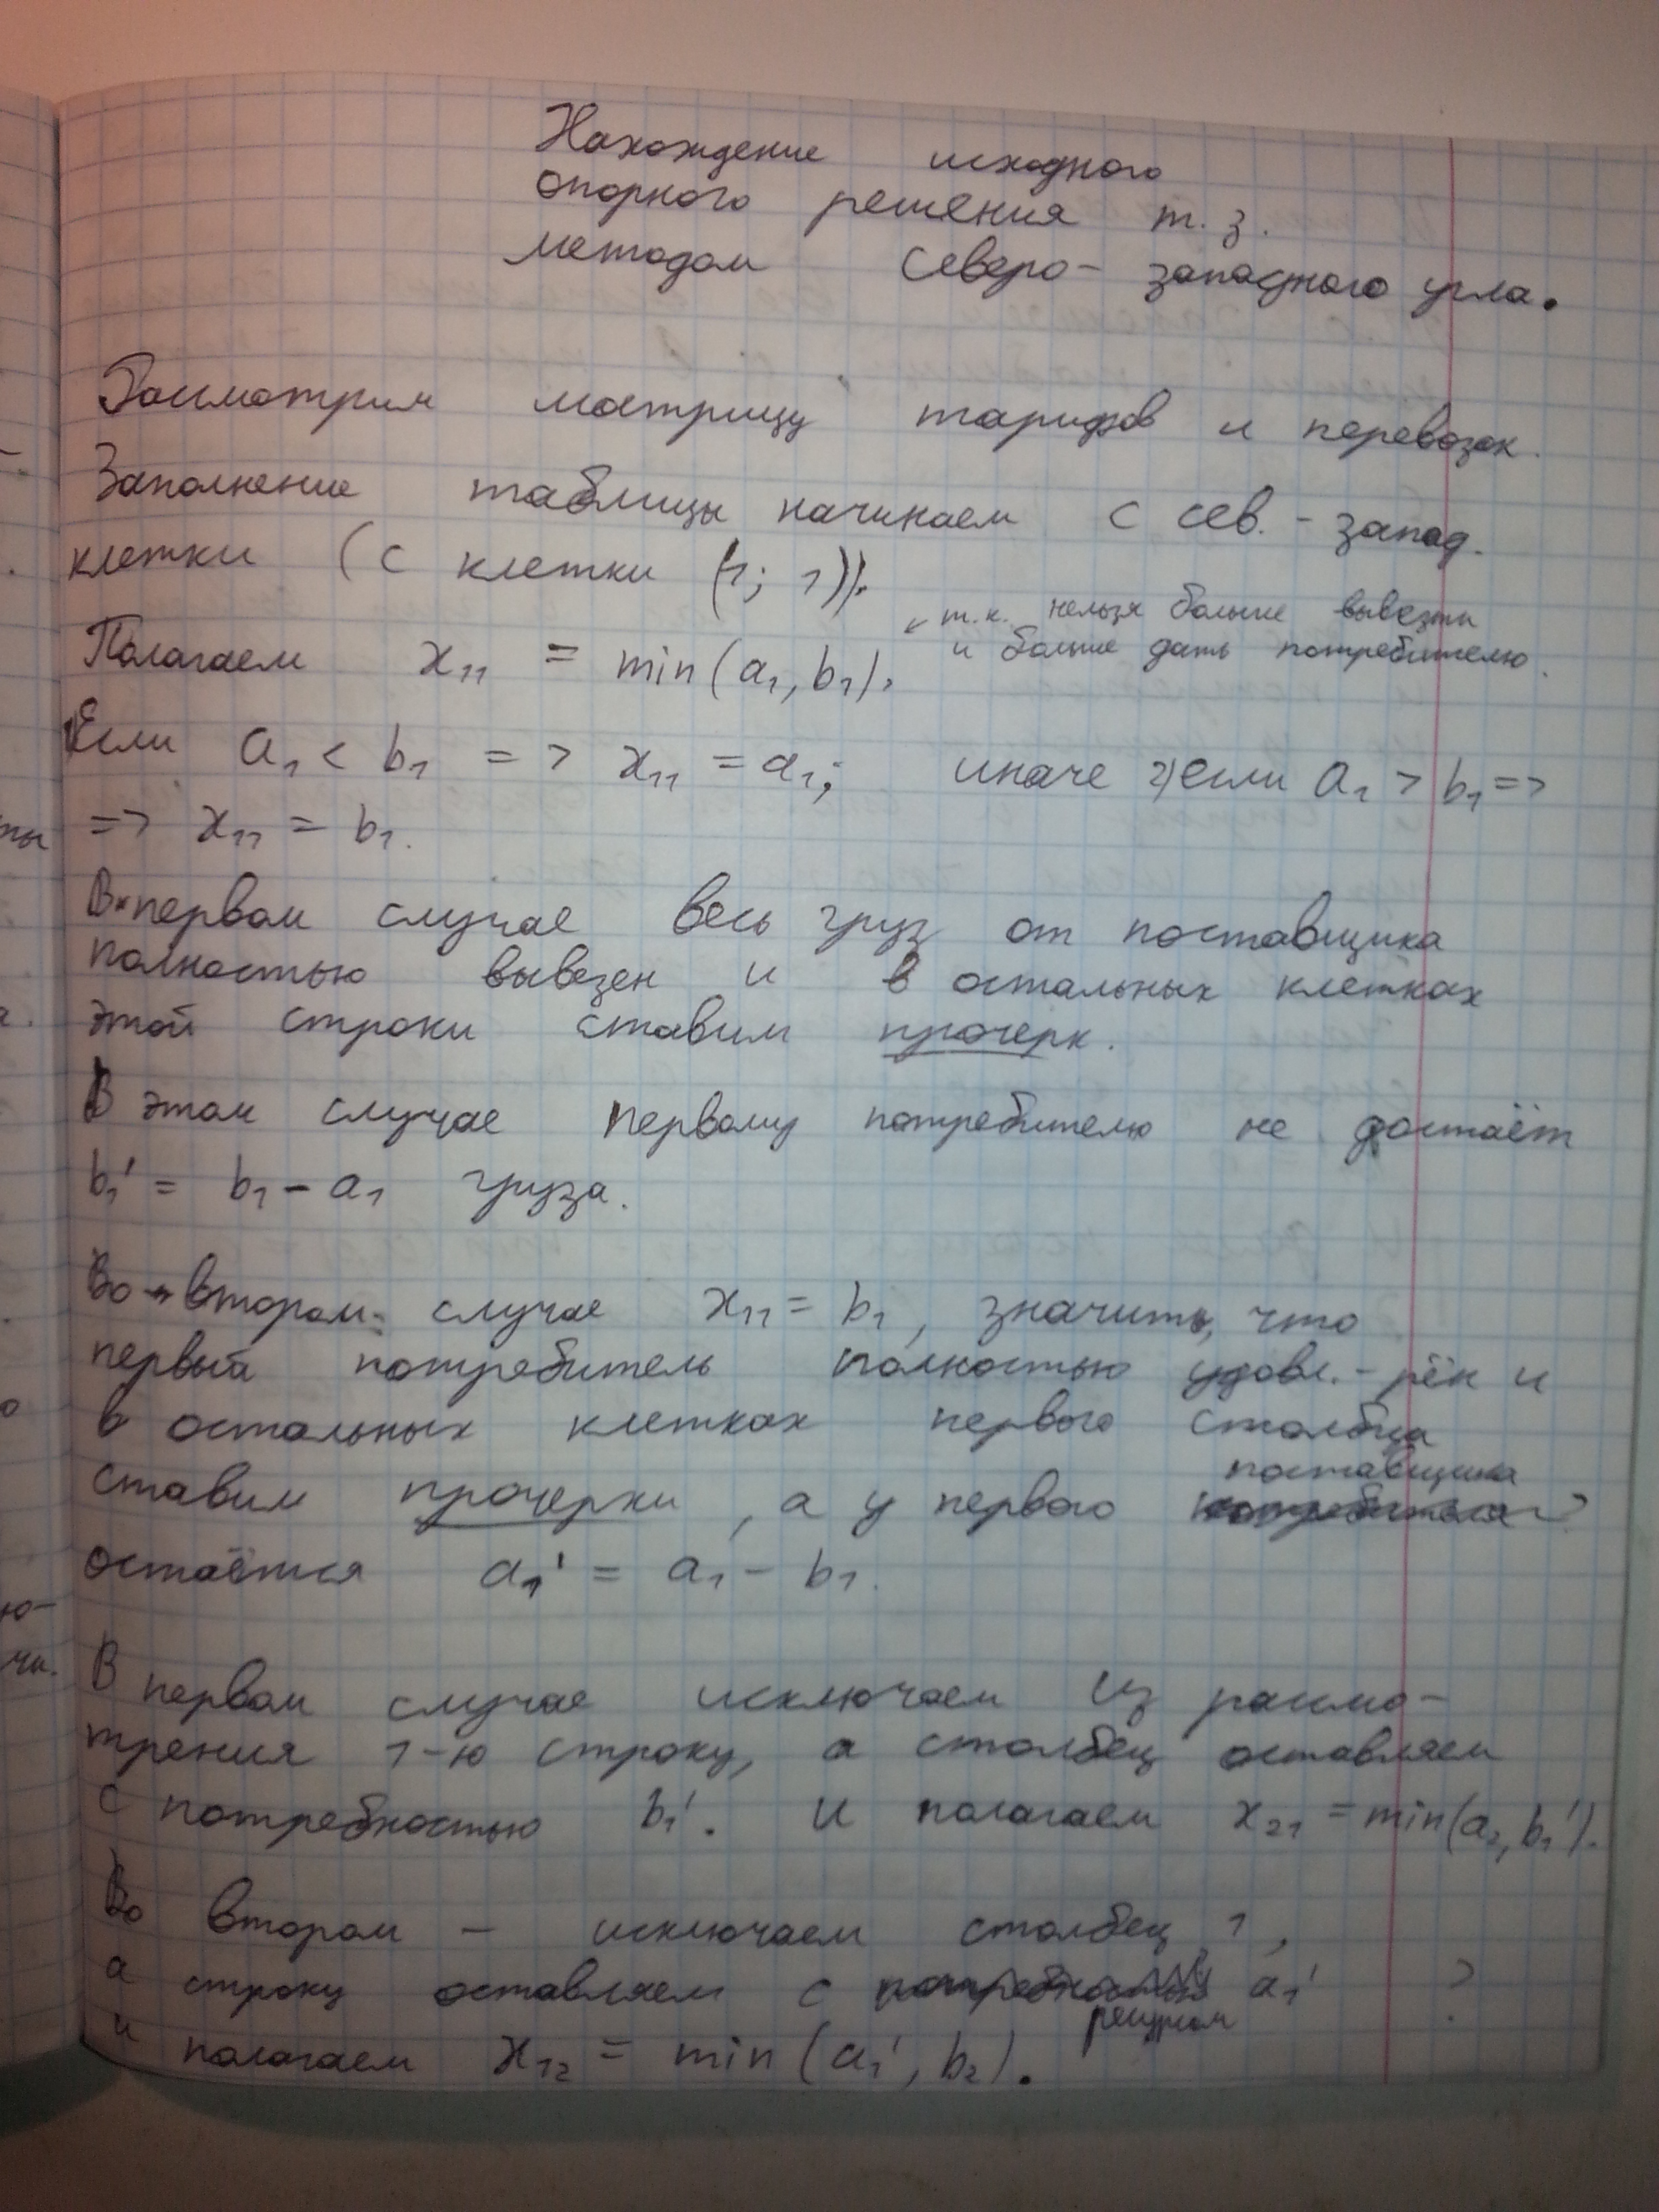 Нахождение исходного
опорного решения т. з.
методом северо-западного угла.
Рассмотрим матрицу тарифов и перевозок.
Заполнение таблицы начинаем с сев.-запад.
клетки (с клетки (1; 1)).
т.к. нельзя больше вывезти
и больше дать потребителю.
Полагаем x₁₁ = min(a₁, b₁).
Если a₁ < b₁ => x₁₁ = a₁; иначе 2) если a₁ > b₁ =>
=> x₁₁ = b₁.
В первом случае весь груз от поставщика
полностью вывезен и в остальных клетках
этой строки ставим прочерк.
В этом случае первому потребителю не достаёт
b₁' = b₁ - a₁ груза.
Во втором случае x₁₁ = b₁, значить, что
первый потребитель полностью удовл.-рён и
в остальных клетках первого столбца
ставим прочерки, а у первого поставщика
остаётся a₁' = a₁ - b₁.
В первом случае исключаем из рассмо-
трения 1-ю строку, а столбец оставляем
с потребностью b₁'. И полагаем x₂₁ = min(a₂, b₁').
Во втором - исключаем столбец 1,
а строку оставляем с ресурсом a₁' ?
и полагаем x₁₂ = min(a₁', b₂).